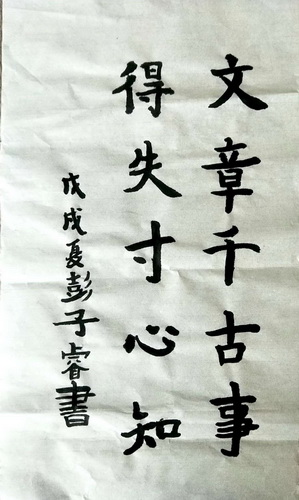 文章千古事
得失寸心知
戊戌夏彭子睿書